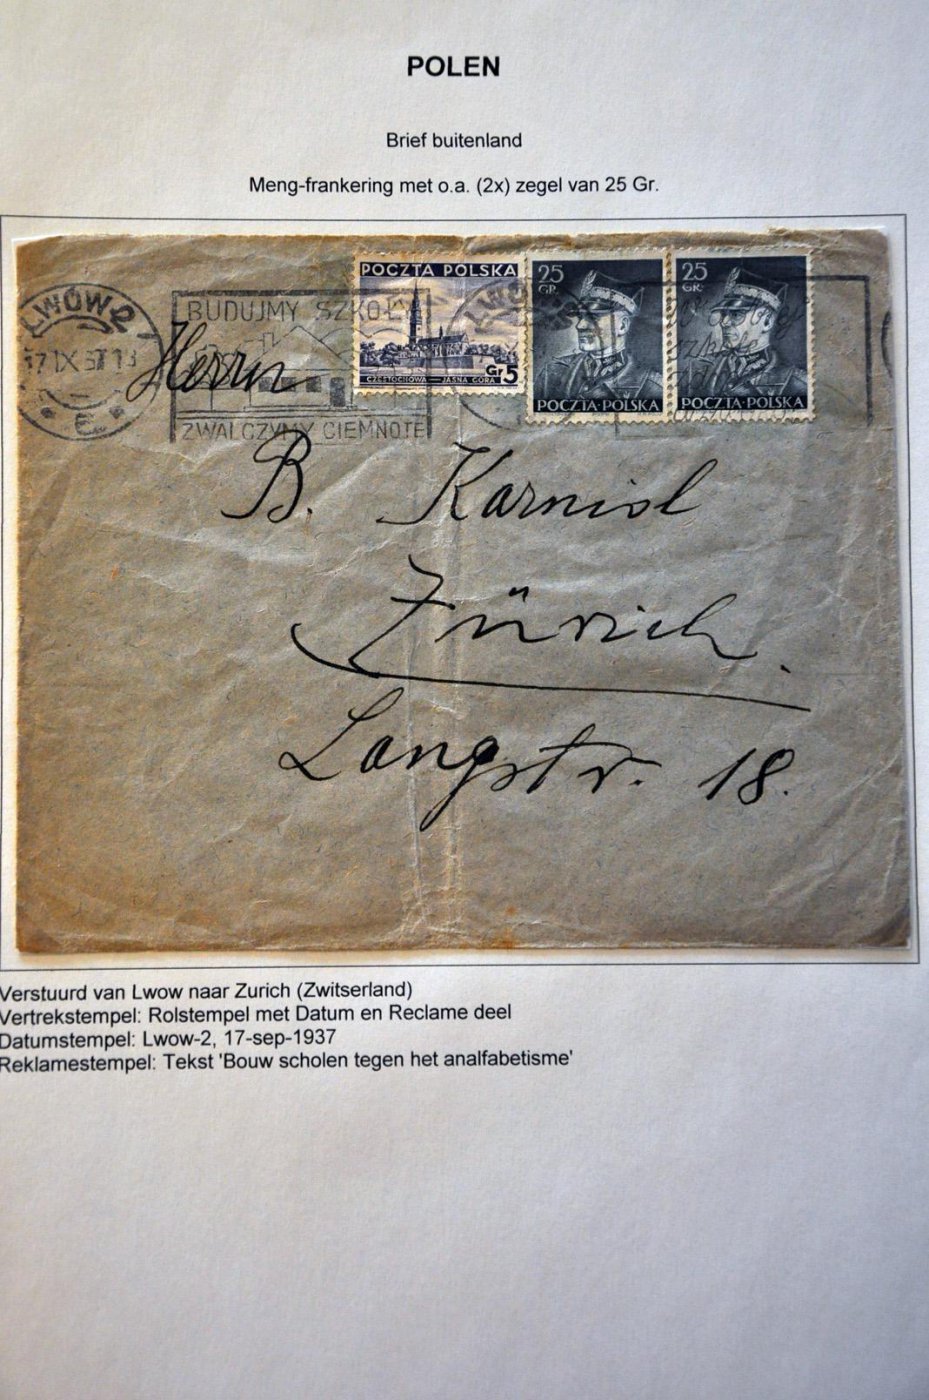 POLEN
Brief buitenland
Meng-frankering met o.a. (2x) zegel van 25 Gr.
POCZTA POLSKA
CZĘSTOCHOWA — JASNA GÓRA
Gr 5
25
GR.
POCZTA·POLSKA
25
GR.
POCZTA·POLSKA
LWÓW 2
17 IX 37 13
E
BUDUJMY SZKOŁY
ZWALCZYMY CIEMNOTĘ
Herrn
B. Karniol
Zürich.
Langstr. 18.
Verstuurd van Lwow naar Zurich (Zwitserland)
Vertrekstempel: Rolstempel met Datum en Reclame deel
Datumstempel: Lwow-2, 17-sep-1937
Reklamestempel: Tekst 'Bouw scholen tegen het analfabetisme'